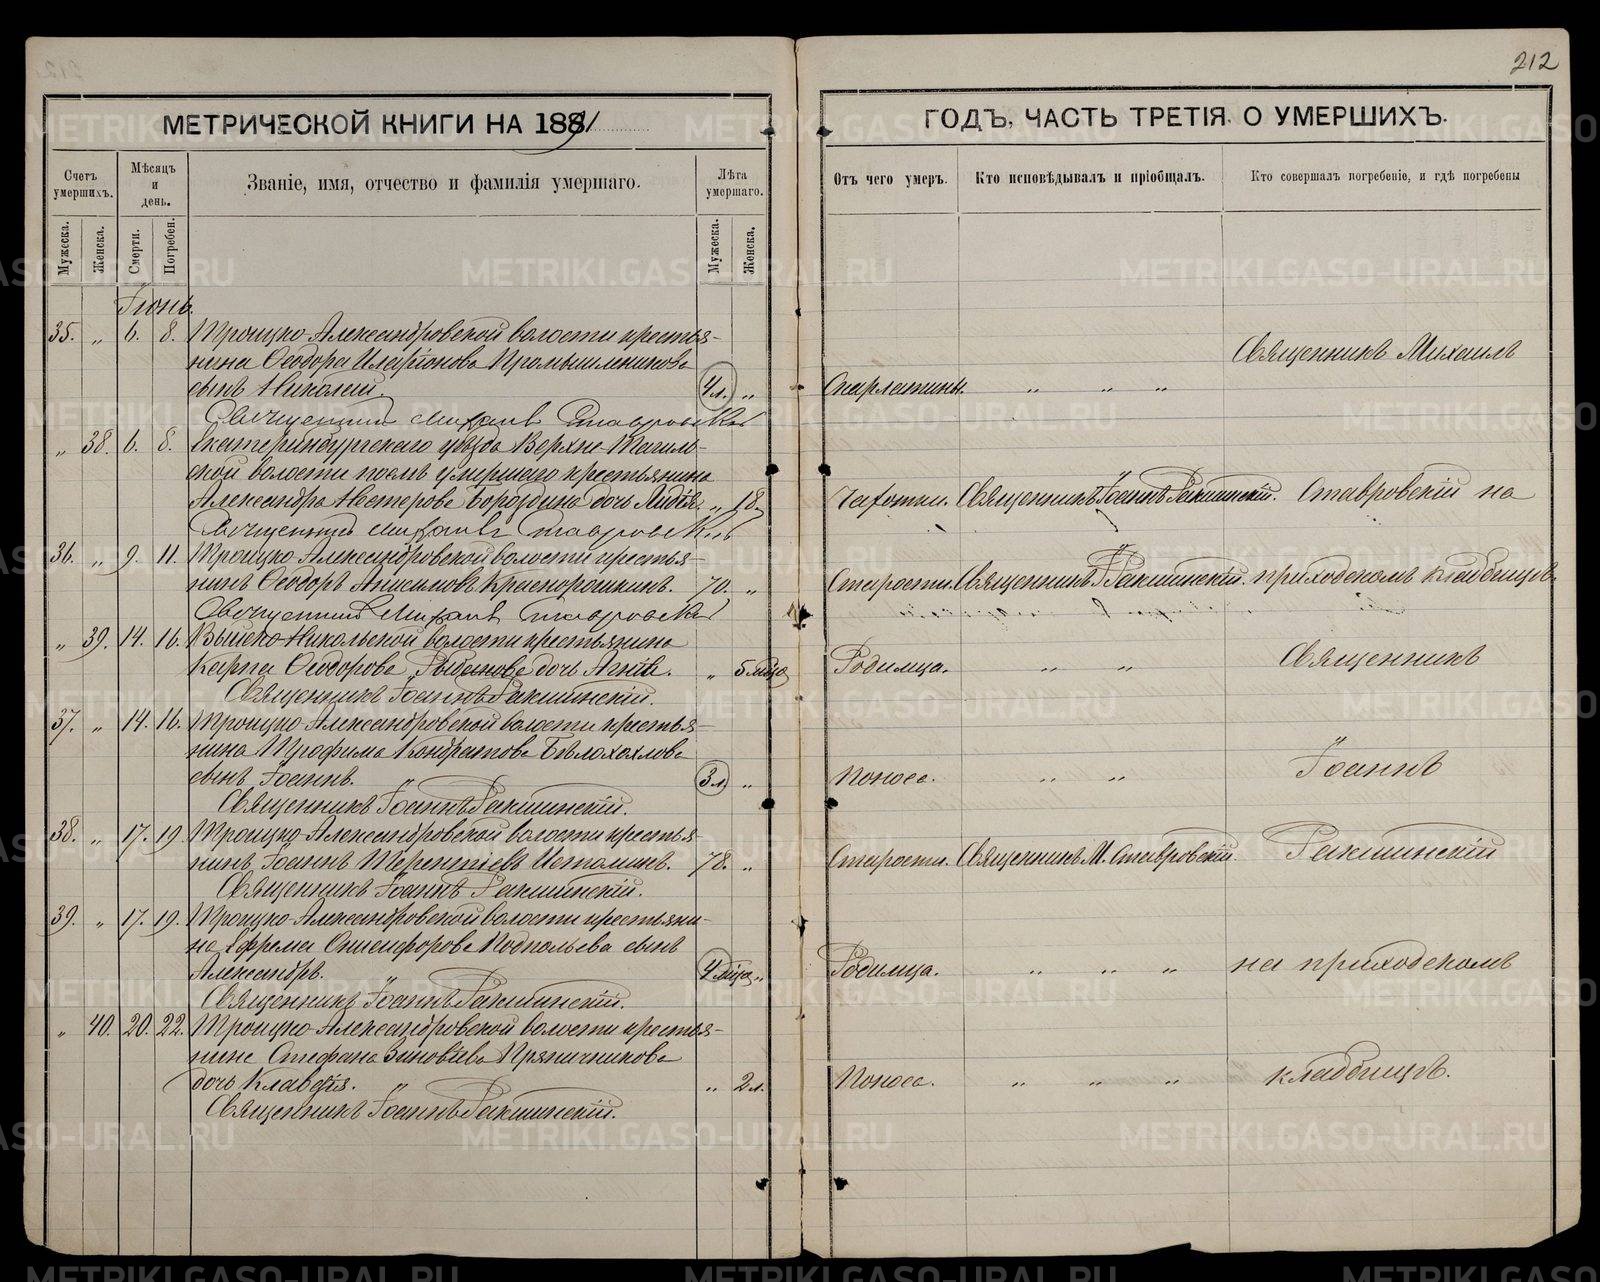 212
МЕТРИЧЕСКОЙ КНИГИ НА 1891
ГОДЪ, ЧАСТЬ ТРЕТІЯ. О УМЕРШИХЪ.
Счетъ умершихъ.
Мѣсяцъ и день.
Званіе, имя, отчество и фамилія умершаго.
Лѣта умершаго.
Отъ чего умеръ.
Кто исповѣдывалъ и пріобщалъ.
Кто совершалъ погребеніе, и гдѣ погребены
Мужеска.
Женска.
Смерти.
Погребен.
Мужеска.
Женска.
Іюнь.
35. „ 6. 8. Троицко-Александровской волости крестья-
нина Ѳеодора Иларіонова Промышленникова
сынъ Николай. 4 л. „ Скарлатины. „ „ „
Священникъ Михаилъ
Священникъ Михаилъ Ставровскій
„ 38. 6. 8. Екатеринбургскаго уѣзда Верхне-Тагиль-
ской волости послѣ умершаго крестьянина
Александра Нестерова Бороздина дочь Лидія. „ 18. Чахотки. Священникъ Іоаннъ Ракшинскій. Ставровскій на
Священникъ Михаилъ Ставровскій
36. „ 9. 11. Троицко-Александровской волости крестья-
нинъ Ѳеодоръ Анисимовъ Красногорошкинъ. 70. „ Старости. Священникъ І Ракшинскій. приходскомъ кладбищѣ.
Священникъ Михаилъ Ставровскій
„ 39. 14. 16. Выйско-Никольской волости крестьянина
Карпа Ѳеодорова Рыбакова дочь Агнія. „ 5 мѣсяц. Родимца. „ „ Священникъ
Священникъ Іоаннъ Ракшинскій.
37. „ 14. 16. Троицко-Александровской волости крестья-
нина Трофима Кондратова Бѣлохохлова
сынъ Іоаннъ. 3 л. „ Поноса. „ „ Іоаннъ
Священникъ Іоаннъ Ракшинскій.
38. „ 17. 19. Троицко-Александровской волости крестья-
нинъ Іоаннъ Терентіевъ Истоминъ. 78. „ Старости. Священникъ М. Ставровскій. Ракшинскій
Священникъ Іоаннъ Ракшинскій.
39. „ 17. 19. Троицко-Александровской волости крестьяни-
на Ефрема Онисифорова Подпольева сынъ
Александръ. 4 мѣсяц. „ Родимца. „ „ „ на приходскомъ
Священникъ Іоаннъ Ракшинскій.
„ 40. 20. 22. Троицко-Александровской волости крестья-
нина Стефана Зиновіева Пряничникова
дочь Клавдія. „ 2 л. Поноса. „ „ „ кладбищѣ.
Священникъ Іоаннъ Ракшинскій.
METRIKI.GASO-URAL.RU